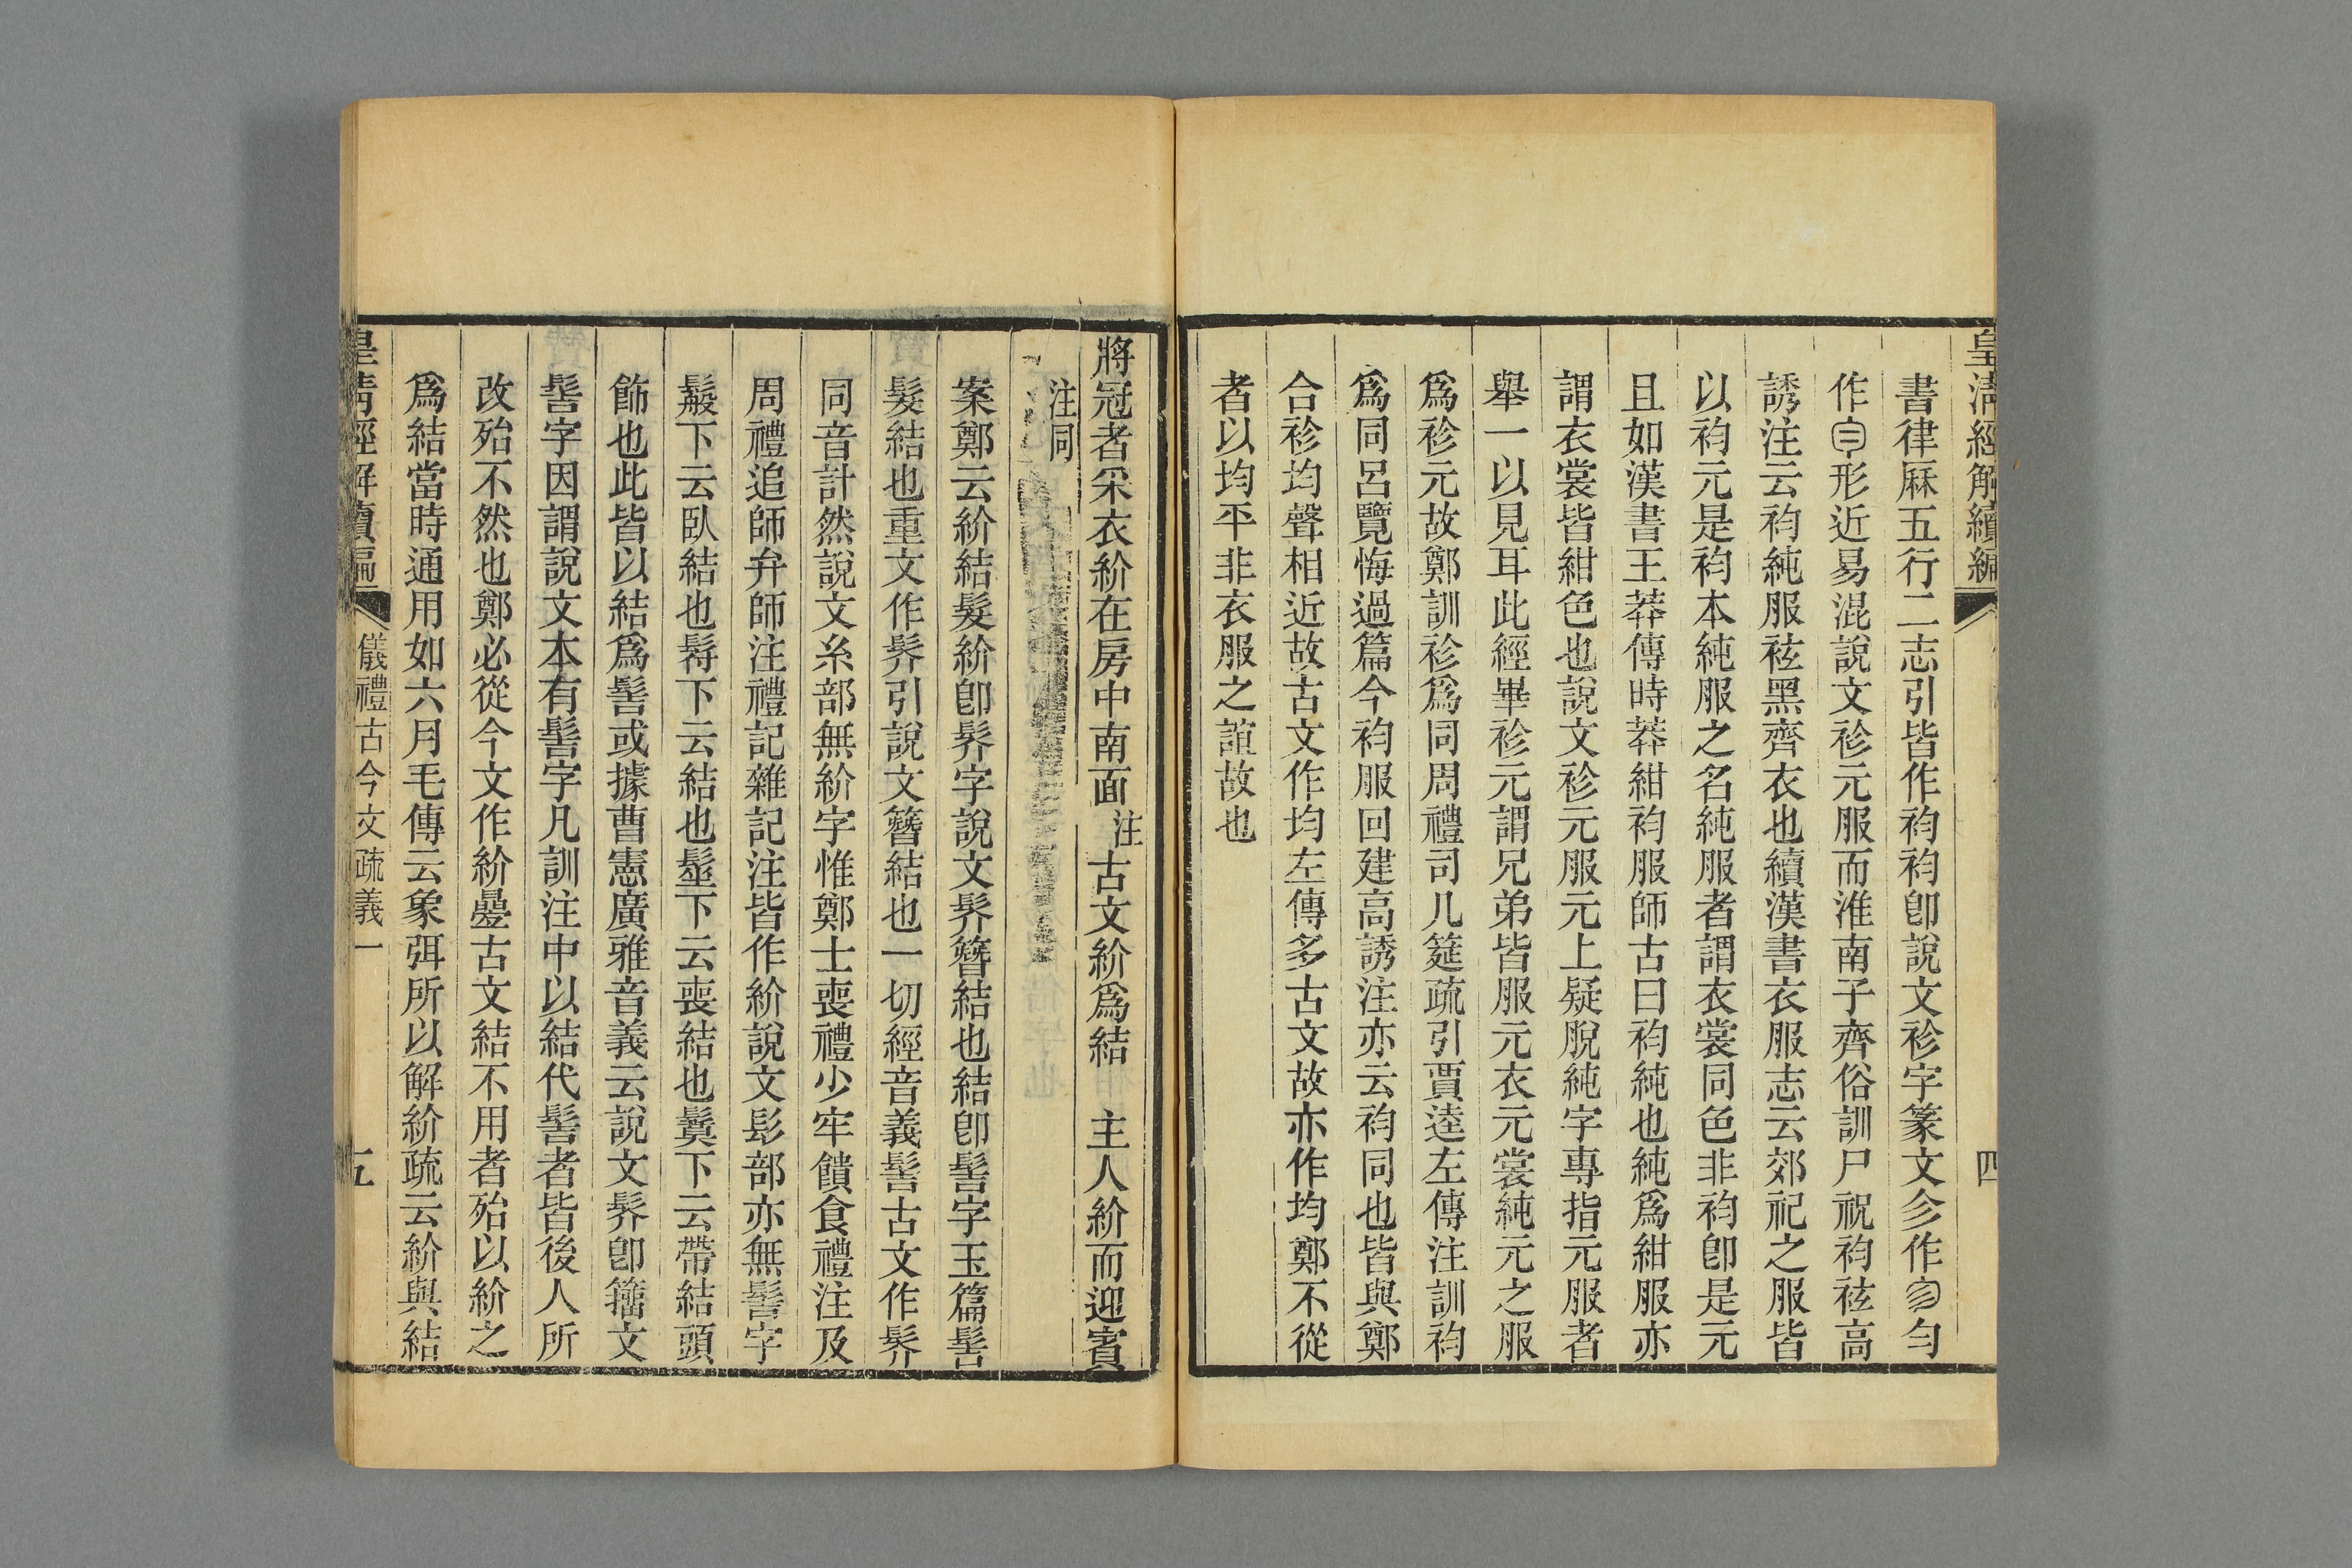 皇淸經解續編
四
書律厤五行二志引皆作袀袀卽說文袗字篆文㐱作勻
作形近易混說文袗元服而淮南子齊俗訓尸祝袀袨高
誘注云袀純服袨黑齊衣也續漢書衣服志云郊祀之服皆
以袀元是袀本純服之名純服者謂衣裳同色非袀卽是元
且如漢書王莽傳時莽紺袀服師古曰袀純也純爲紺服亦
謂衣裳皆紺色也說文袗元服元上疑脫純字專指元服者
舉一以見耳此經畢袗元謂兄弟皆服元衣元裳純元之服
爲袗元故鄭訓袗爲同周禮司几筵疏引賈逵左傳注訓袀
爲同呂覽悔過篇今袀服回建高誘注亦云袀同也皆與鄭
合袗均聲相近故古文作均左傳多古文故亦作均鄭不從
者以均平非衣服之誼故也
將冠者采衣紒在房中南面注古文紒爲結 主人紒而迎賓
注同
案鄭云紒結髮紒卽髻字說文髻簪結也結卽髻字玉篇髻
髮結也重文作髻引說文簪結也一切經音義髻古文作髻
同音計然說文糸部無紒字惟鄭士喪禮少牢饋食禮注及
周禮追師弁師注禮記雜記注皆作紒說文髟部亦無髻字
鬆下云臥結也下云結也下云喪結也下云帶結頭
飾也此皆以結爲髻或據曹憲廣雅音義云說文卽籀文
髻字因謂說文本有髻字凡訓注中以結代髻者皆後人所
改殆不然也鄭必從今文作紒曡古文結不用者殆以紒之
爲結當時通用如六月毛傳云象弭所以解紒疏云紒與結
皇淸經解續編
儀禮古今文疏義一
五